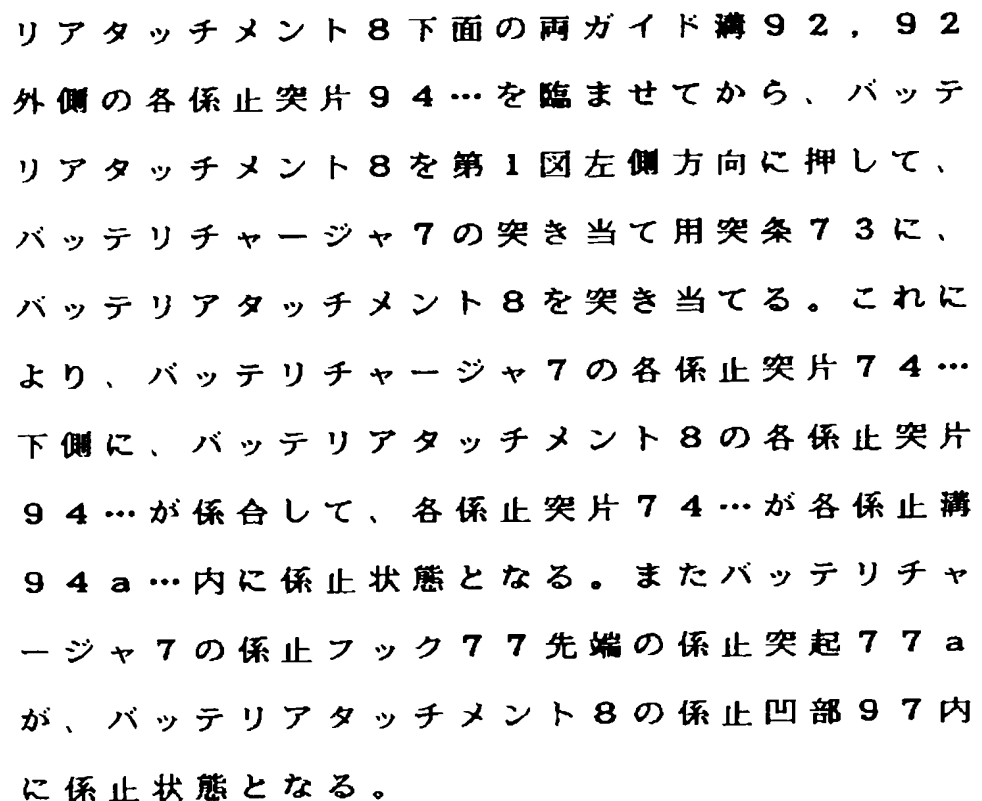 リアタッチメント8下面の両ガイド溝92，92
外側の各係止突片94…を臨ませてから、バッテ
リアタッチメント8を第1図左側方向に押して、
バッテリチャージャ7の突き当て用突条73に、
バッテリアタッチメント8を突き当てる。これに
より、バッテリチャージャ7の各係止突片74…
下側に、バッテリアタッチメント8の各係止突片
94…が係合して、各係止突片74…が各係止溝
94a…内に係止状態となる。またバッテリチャ
ージャ7の係止フック77先端の係止突起77a
が、バッテリアタッチメント8の係止凹部97内
に係止状態となる。